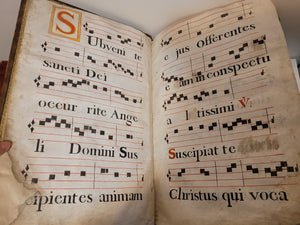 Subveni te
sancti Dei
occur rite Ange
li Domini Sus
cipientes animam
e jus Offerentes
eam in conspectu
A ltissimi V.
Suscipiat te
Christus qui voca